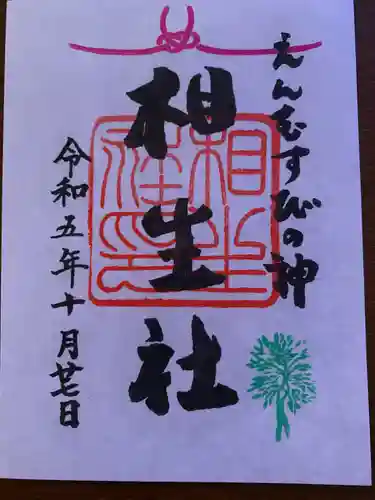 えんむすびの神
相生社
令和五年十月廿七日